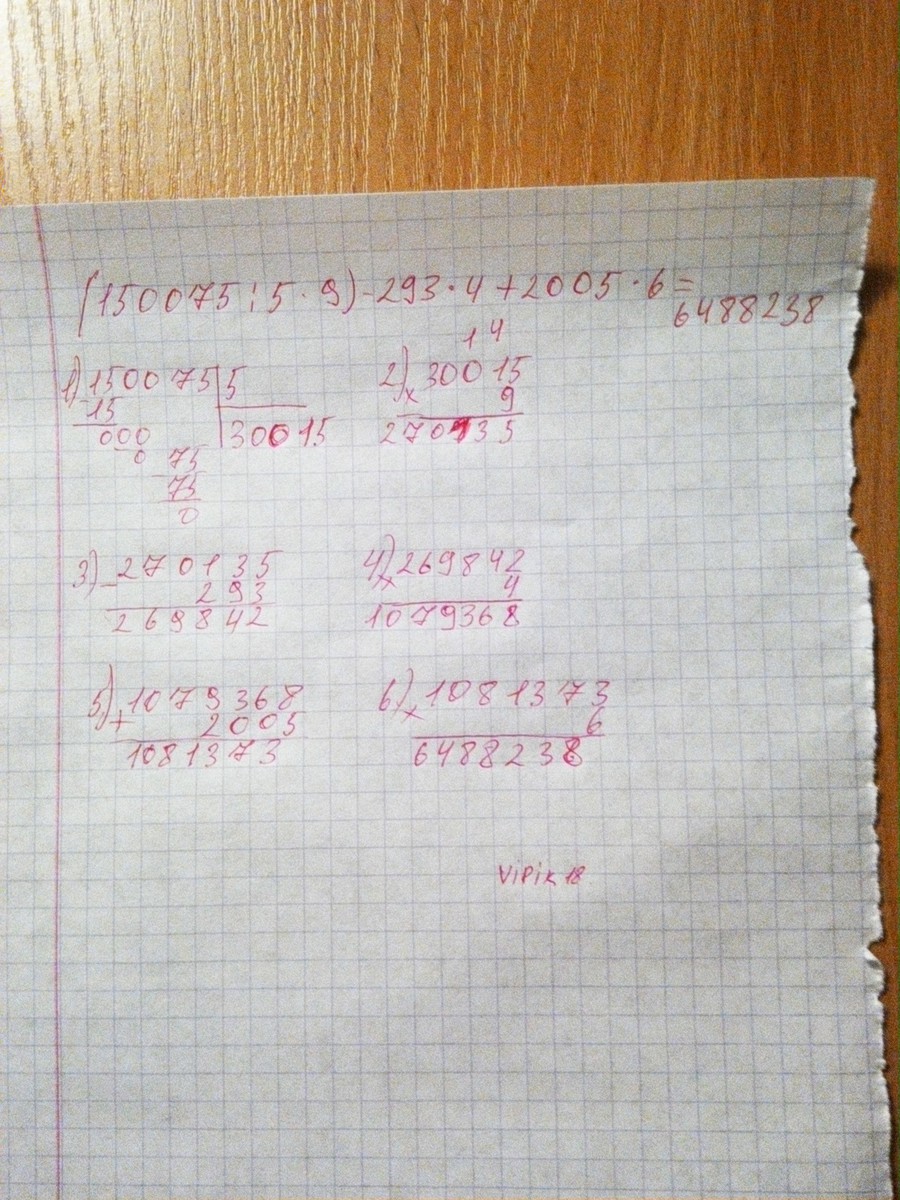 (150075:5·9)-293·4+2005·6=
6488238
1 4
1) 150075|5
2) 30015
-15
x 9
000
30015
270135
0 75
75
0
3) -270135
4) 269842
293
x 4
269842
1079368
5) 1079368
6) 1081373
+ 2005
x 6
1081373
6488238
ViPiK 18